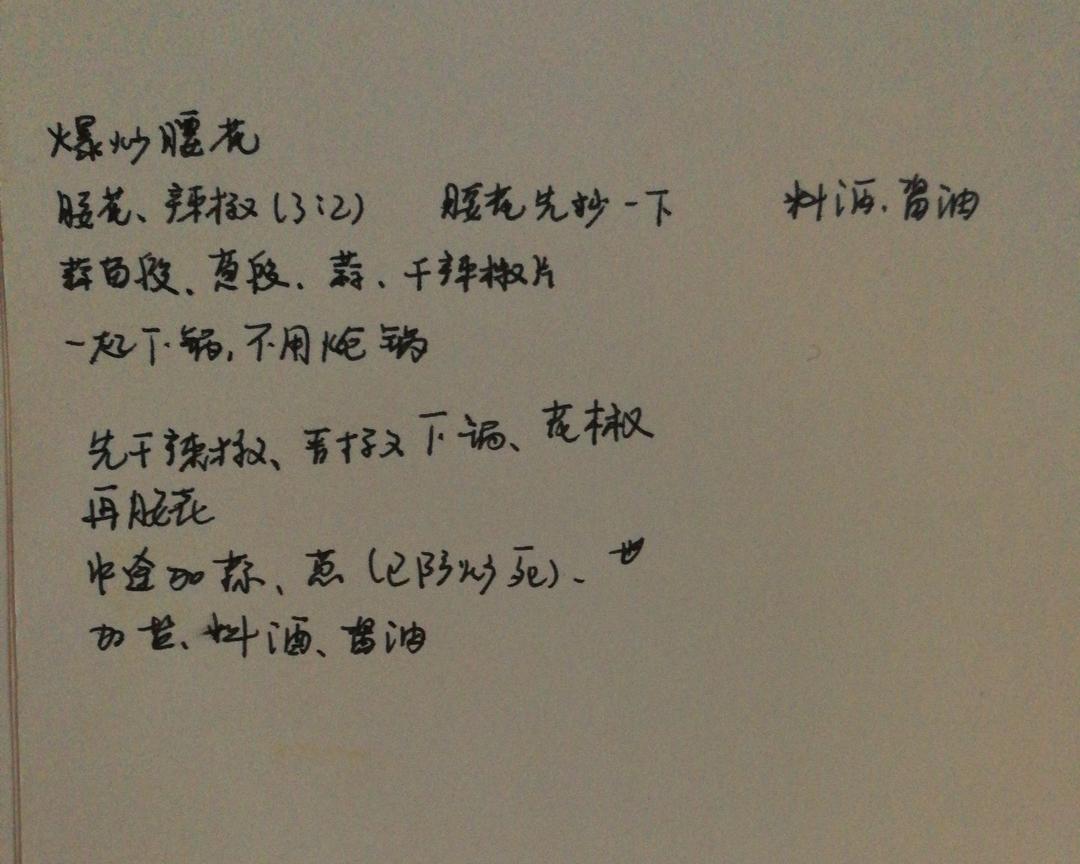 爆炒腰花
腰花、辣椒(3:2) 腰花先炒一下 料酒、酱油
蒜苗段、葱段、蒜、干辣椒片
一起下锅,不用炝锅
先干辣椒、青椒下锅、花椒
再腰花
中途加蒜、葱(已防炒死)、
加芡、料酒、酱油